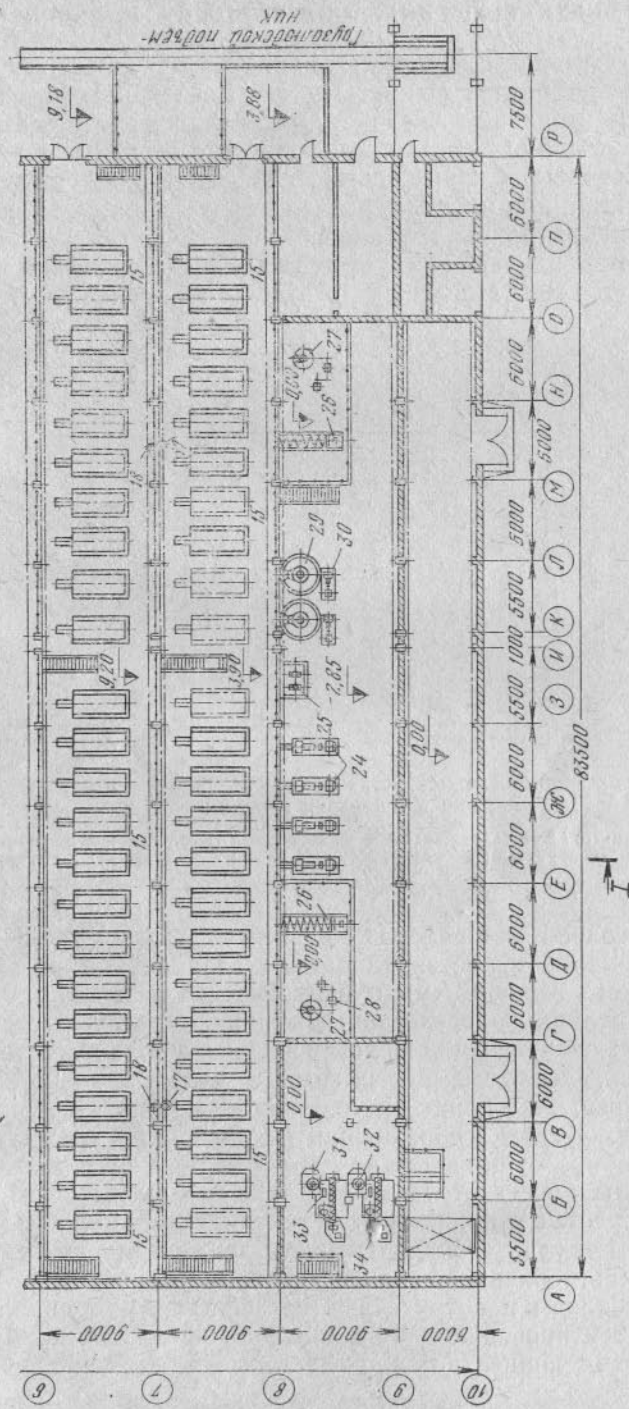 Грузолюдской подъем-
ник
9,18
3,88
7500
Р
6000
П
6000
О
6000
Н
5000
М
5000
Л
5500
К
1000
И
5500
З
6000
Ж
6000
Е
6000
Д
6000
Г
6000
В
6000
Б
5500
А
83500
I
15
15
18
15
9,20
3,90
15
18
17
15
15
27
0,00
26
29
30
25
-2,85
24
0,00
26
0,00
27
28
0,00
31
32
33
34
9000
9000
9000
6000
6
7
8
9
10